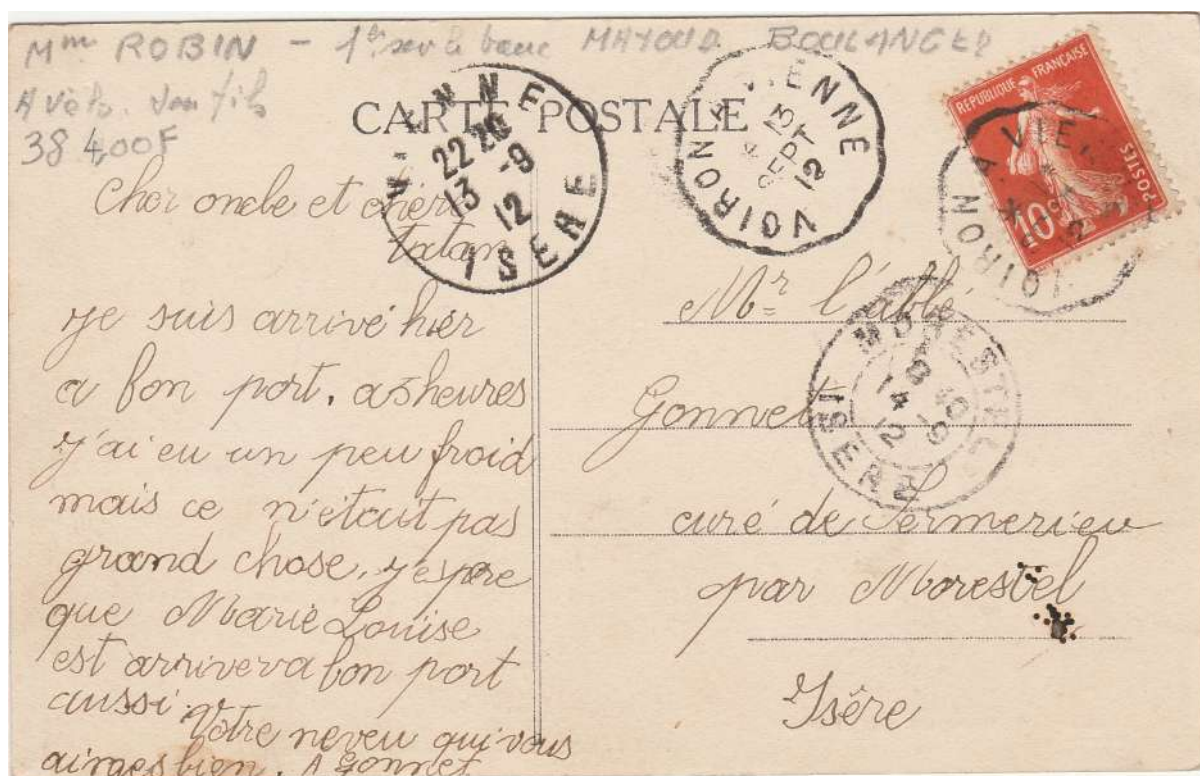 Mme ROBIN - 1er sur le banc MAYOUD BOULANGER
A vélo. son fils
38 4,00F
CARTE POSTALE
VIENNE
22 20
13 -9
12
ISERE
VOIRON A VIENNE
13
SEPT
12
REPUBLIQUE FRANÇAISE
POSTES
10c
VOIRON A VIENNE
Cher oncle et chère
tatan
je suis arrivé hier
a bon port, a 5 heures
j'ai eu un peu froid
mais ce n'était pas
grand chose. j'espre
que Marie Louise
est arriver a bon port
aussi.
Votre neveu qui vous
aimes bien. A Gonnet
Mr l'abbé
Gonnet
MORESTEL
14 9
12
ISERE
curé de Sermerieu
par Morestel
Isère